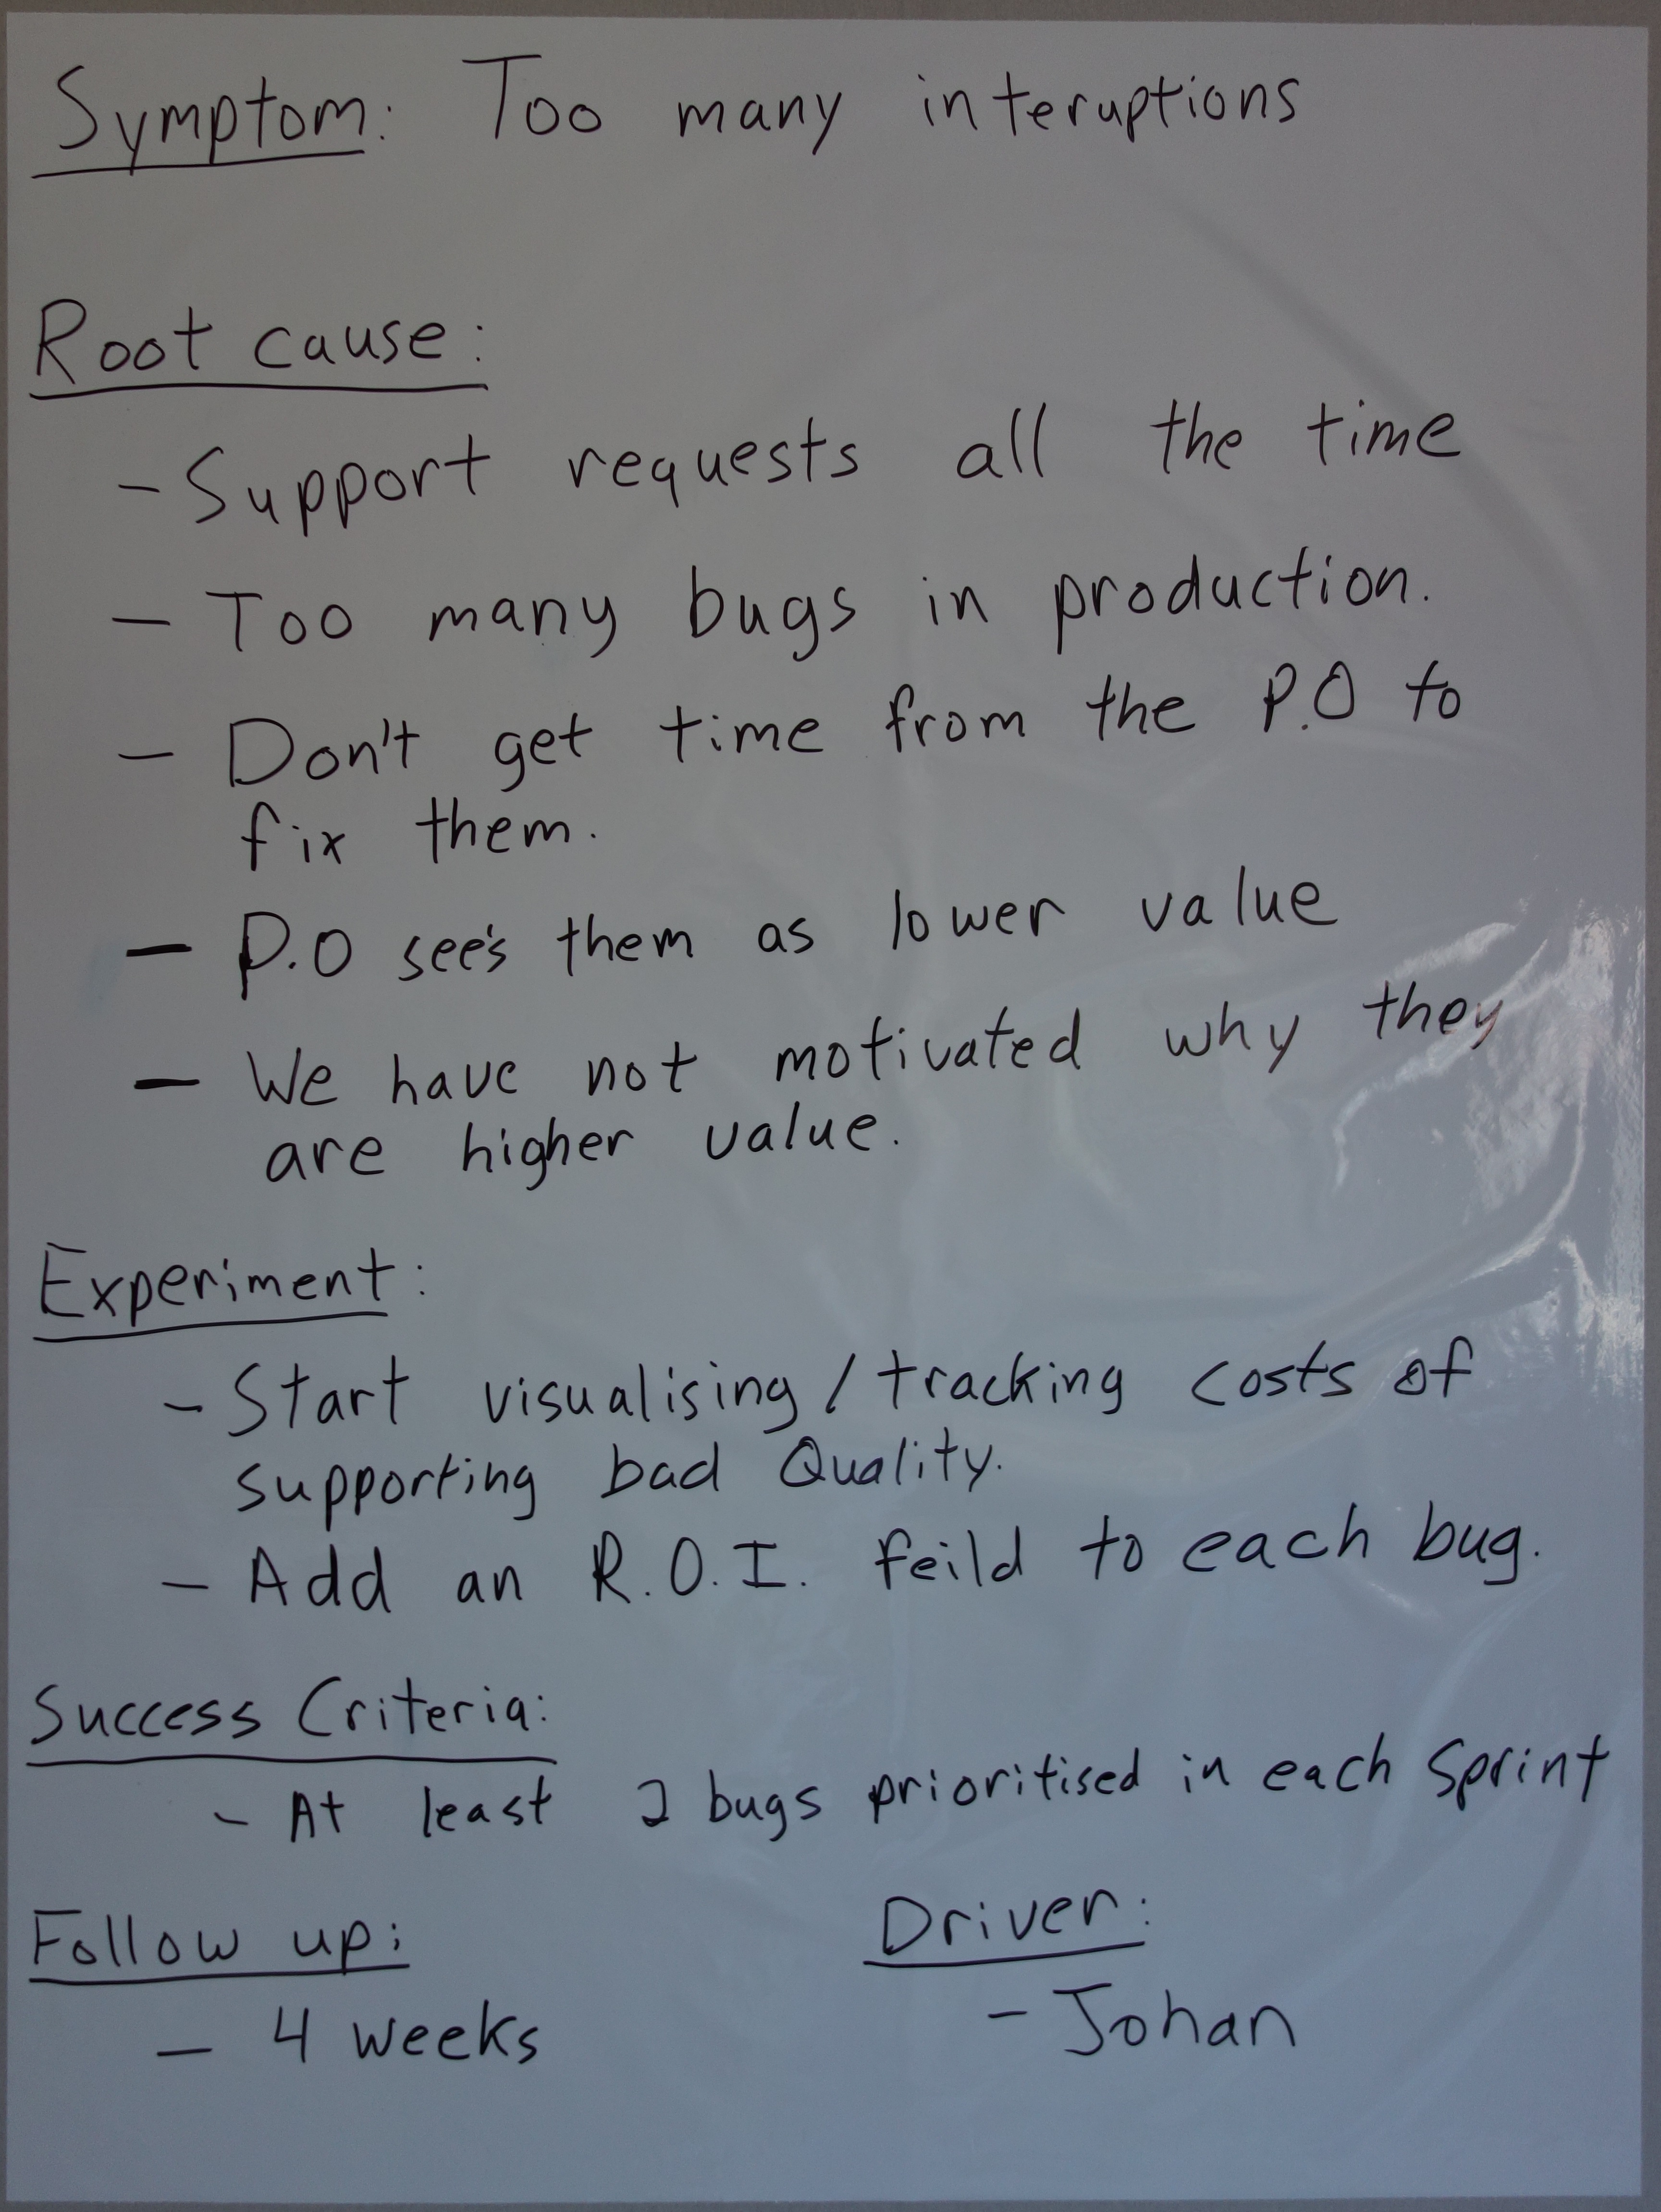 Symptom: Too many interuptions
Root cause:
- Support requests all the time
- Too many bugs in production.
- Don't get time from the P.O to
fix them.
- P.O see's them as lower value
- We have not motivated why they
are higher value.
Experiment:
- Start visualising / tracking costs of
supporting bad Quality.
- Add an R.O.I. feild to each bug.
Success Criteria:
- At least 2 bugs prioritised in each Sprint
Follow up:
- 4 weeks
Driver:
- Johan